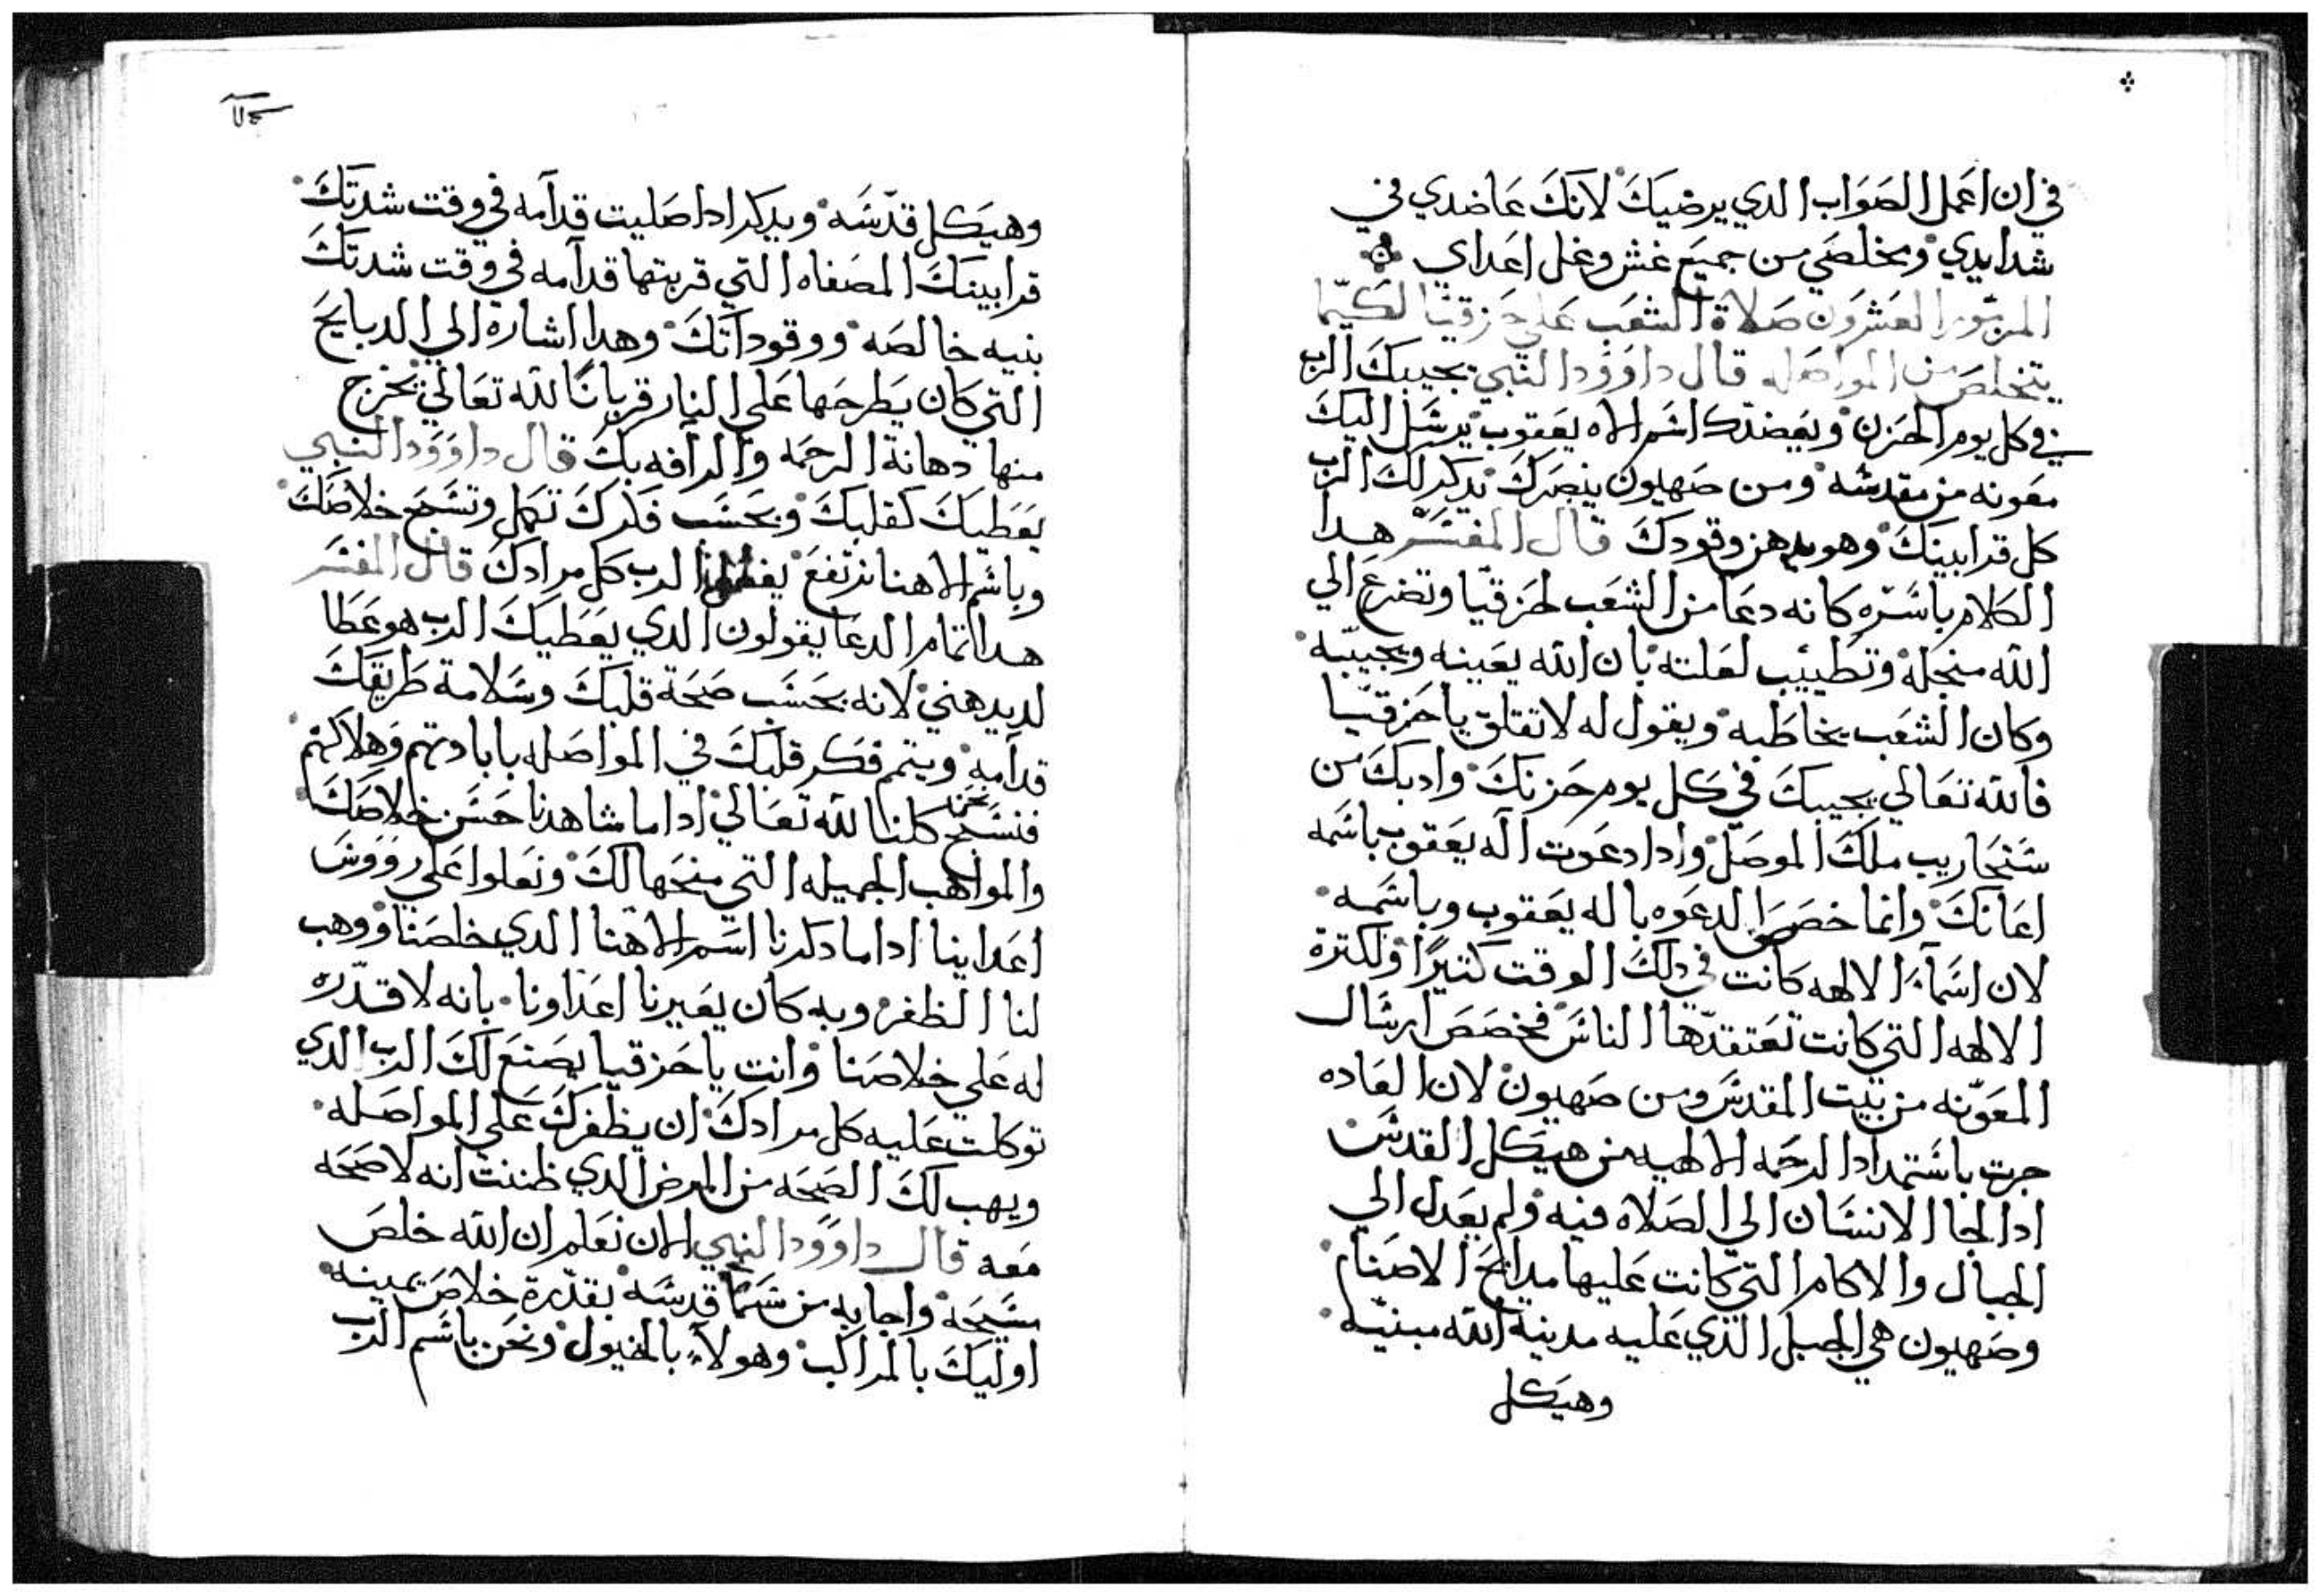 في ان اعمل الصواب الدي يرضيك لانك عاضدي في
شدايدي ومخلصي من جميع غش وغل اعداي
المزمور العشرون صلاة الشعب علي حزقيا لكيما
يتخلص من المواصله قال داوود النبي يجيبك الرب
في كل يوم الحزن ويعضدك اسم الاه يعقوب يرسل اليك
معونه من مقدسه ومن صهيون ينصرك يدكر لك الرب
كل قرابينك وهو يدهن وقودك قال المفسر هدا
الكلام باسره كانه دعا من الشعب لحزقيا وتضرع الي
الله منجله وتطييب لعلته بان الله يعينه ويجيبه
وكان الشعب يخاطبه ويقول له لا تقلق يا حزقيا
فالله تعالي يجيبك في كل يوم حزنك وادبك من
سنحاريب ملك الموصل وادا دعوت اله يعقوب باسمه
اعانك وانما خصص الدعوه باله يعقوب وباسمه
لان اسماء الالهه كانت في دلك الوقت كتيرا ولكترة
الالهه التي كانت تعتقدها الناس فخصص ارسال
المعونه من بيت المقدس ومن صهيون لان العاده
جرت باستمداد الرحمه الالهيه من هيكل القدس
ادا لجا الانسان الي الصلاه فيه ولم يعدل الي
الجبال والاكام التي كانت عليها مدابح الاصنام
وصهيون هي الجبل الذي عليه مدينة الله مبنيه
وهيكل
وهيكل قدسه ويدكر ادا صليت قدامه في وقت شدتك
قرابينك المصفاه التي قربتها قدامه في وقت شدتك
بنيه خالصه ووقوداتك وهدا اشارة الي الدبايح
التي كان يطرحها علي النار قربانا لله تعالي يخرج
منها دهانة الرحمه والرافه بك قال داوود النبي
يعطيك كقلبك وبحسب فكرك تكمل وتسبح خلاصك
وباسم الاهنا نرتفع يفعل الرب كل مرادك قال المفسر
هدا تمام الدعا يقولون الدي يعطيك الرب هو عطا
لديد هني لانه بحسب صحة قلبك وسلامة طريقك
قدامه ويتم فكر قلبك في المواصله بابادتهم وهلاكهم
فنسبح نحن كلنا لله تعالي ادا ما شاهدنا حسن خلاصك
والمواهب الجميله التي منحها لك ونعلوا علي رووس
اعداينا ادا ما دكرنا اسم الاهنا الدي خلصنا ووهب
لنا الظفر وبه كان يعيرنا اعداونا بانه لا قدره
له علي خلاصنا وانت يا حزقيا يصنع لك الرب الدي
توكلت عليه كل مرادك ان يظفرك علي المواصله
ويهب لك الصحه من المرض الدي ظننت انه لا صحه
معه قال داوود النبي الان نعلم ان الله خلص
مسيحه واجابه من سما قدسه بقدرة خلاص يمينه
اوليك بالمراكب وهولاء بالخيول ونحن باسم الرب